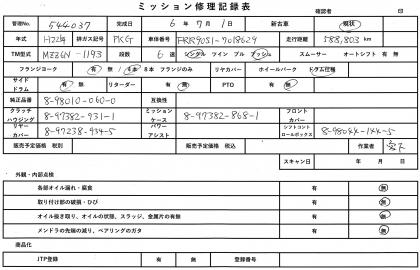 ミッション修理記録表
確認者 印
管理No. 544037 完成日 6 年 7 月 1 日 新古車 現状
年式 H22年 排ガス記号 PKG 車体番号 FRR90S1-7018629 走行距離 588,803 km
TM型式 MZZ6N-1193 段数 6 速 シングル ツイン プル プッシュ スムーサー オートシフト 有 無
フランジヨーク 有 無 4本 8本 フランジのみ リヤカバー ホイールパーク ドラム仕様
サイドドラム 有 無 リターダー 有 無 PTO 有 無
純正品番 8-98010-060-0 互換性
クラッチハウジング 8-97382-931-1 ミッションケース 8-97382-868-1 フロントカバー
リヤーカバー 8-97238-934-5 パワーアシスト シフトコントロールボックス 8-98044-144-5
販売予定価格 税別 販売予定価格 税込 作業者
スキャン日 年 月 日
外観・内部点検
各部オイル漏れ・腐食 有 無
取り付け部の破損・ひび 有 無
オイル抜き取り、オイルの状態、スラッジ、金属片の有無 有 無
メンドラの先端の減り、ベアリングのガタ 有 無
商品化
JTP登録 有 無 登録番号